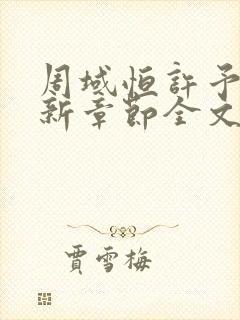 周域恒許予
新章節全文
賈雪梅